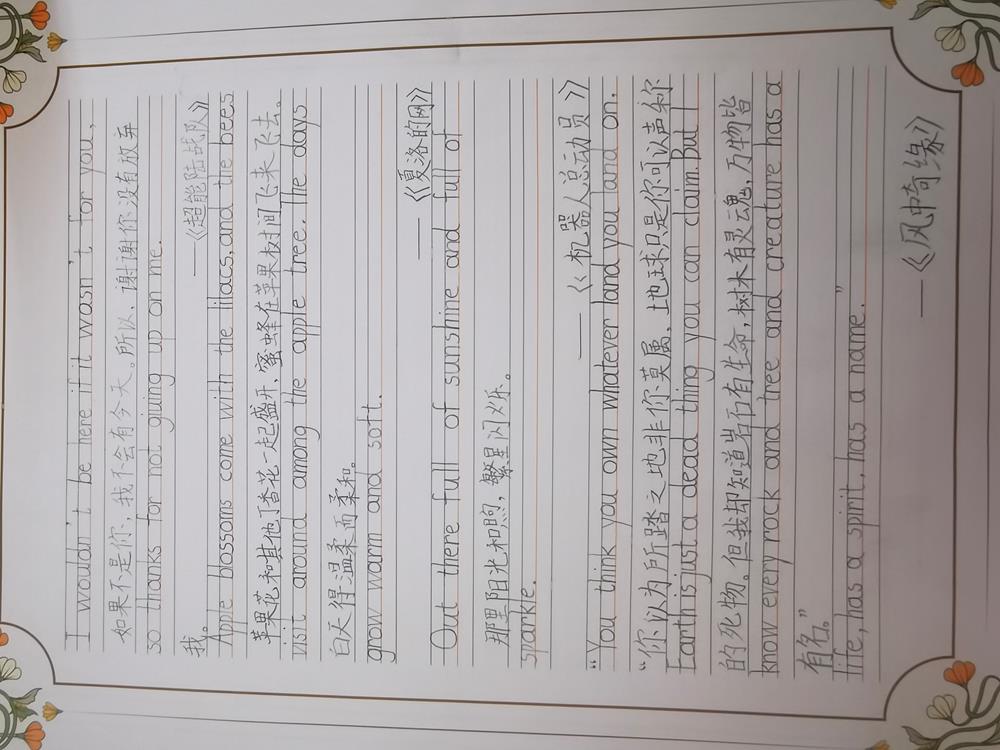 I wouldn't be here if it wasn't for you,
如果不是你，我不会有今天。所以，谢谢你没有放弃
so thanks for not giving up on me.
我。
——《超能陆战队》
Apple blossoms come with the lilacs,and the bees
苹果花和其他丁香花一起盛开，蜜蜂在苹果树间飞来飞去。
visit around among the apple tree. The days
白天得温柔而柔和。
grow warm and soft.
——《夏洛的网》
Out there full of sunshine and full of
那里阳光和煦，繁星闪烁。
sparkle.
——《机器人总动员》
“You think you own whatever land you land on.
“你以为所踏之地非你莫属，地球只是你可以声称
Earth is just a dead thing you can claim.But I
的死物。但我却知道岩石有生命，树木有灵魂，万物皆
know every rock and tree and creature has a
有名。”
life, has a spirit, has a name.”
——《风中奇缘》